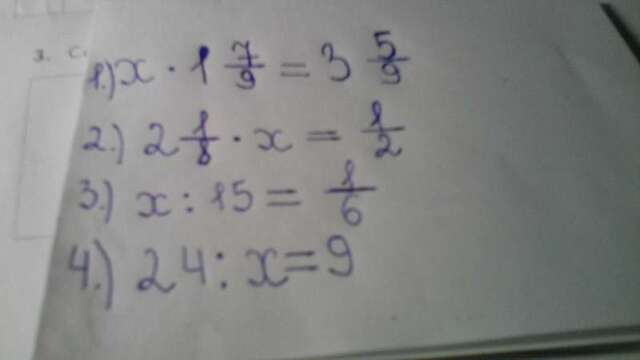 3. С.
1.) x · 1 7/9 = 3 5/9
2.) 2 1/8 · x = 1/2
3.) x : 15 = 1/6
4.) 24 : x = 9